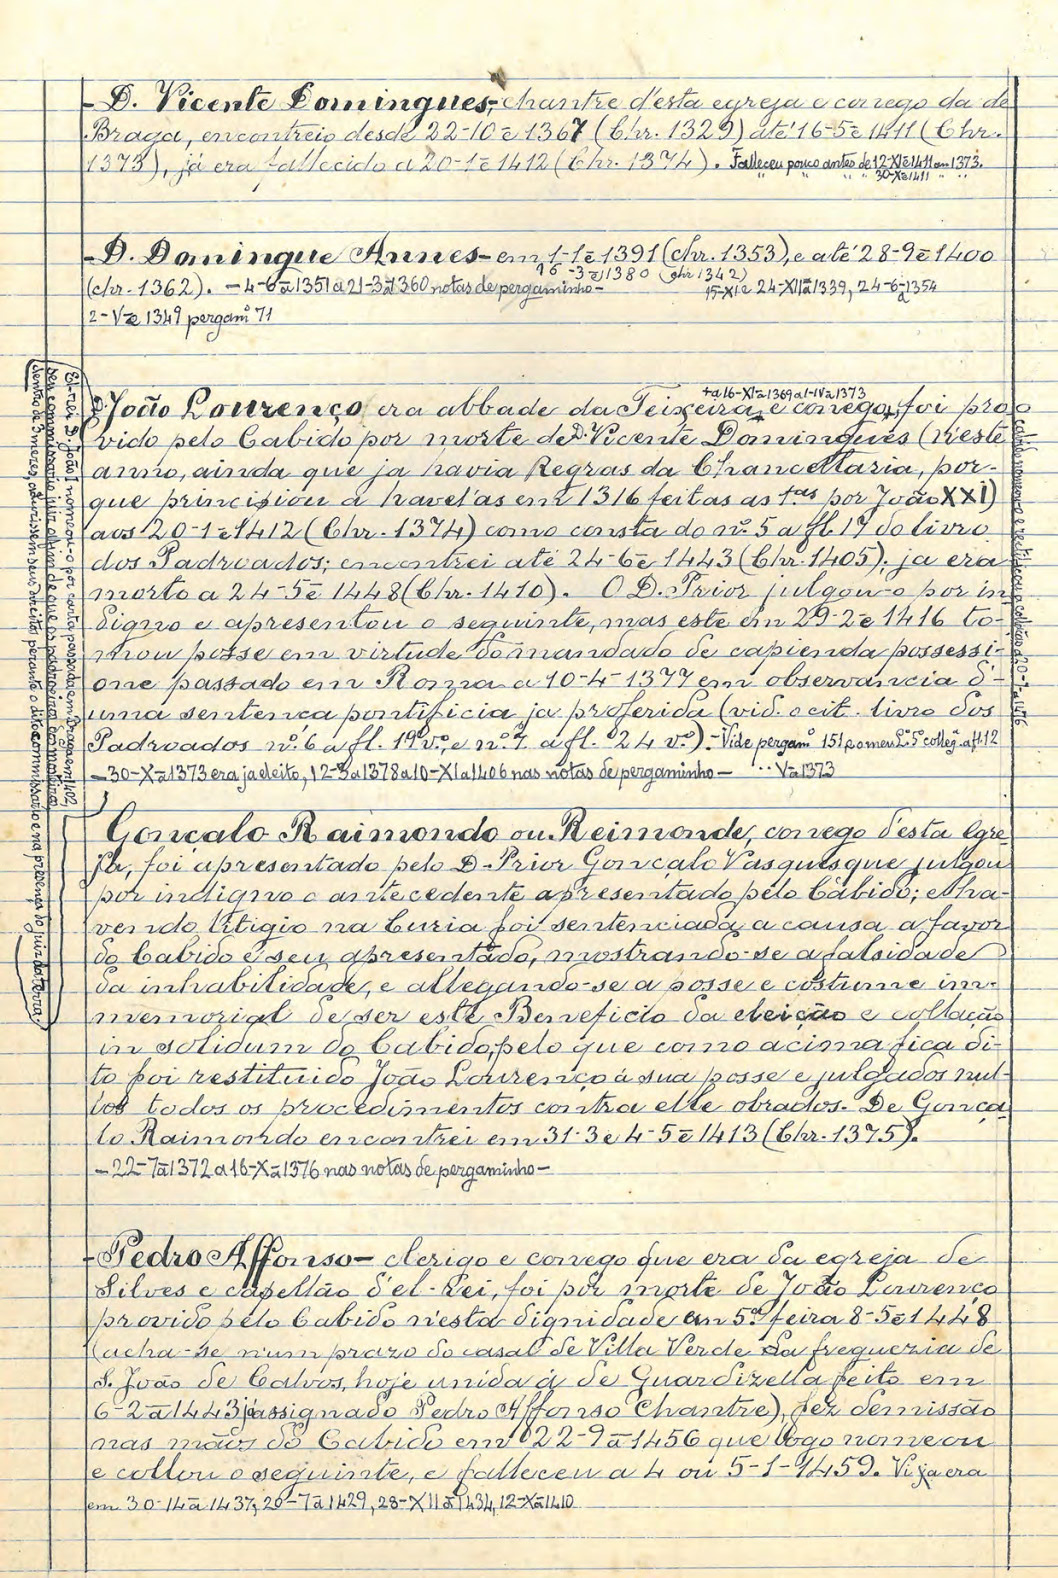 - D. Vicente Domingues, chantre d'esta egreja e conego da de
Braga, encontrei-o desde 22-10 ē 1367 (Chr. 1329) até 16-5 ē 1411 (Chr.
1373), já era fallecido a 20-1 ē 1412 (Chr. 1374). Falleceu pouco antes de 12-XI ē 1411 ou 1373.
" " " " 30-X ē 1411 " "
- D. Domingue Annes - em 1-1 ē 1391 (chr. 1353), e até 28-9 ē 1400
16-3 ē 1380 (chr 1342)
(chr. 1362). - 4-6 ā 1351 a 21-3 ā 1360 notas de pergaminho - 15-XI e 24-XII ā 1339, 24-6 ā 1354
2-V ē 1349 pergamº 71
+ a 16-XI ā 1369 a 1-IV ā 1373
D. João Lourenço era abbade da Teixeira, e conego, foi pro-
vido pelo Cabido por morte de D. Vicente Domingues (n'este
anno, ainda que ja havia Regras da Chancellaria, por-
que principiou a havel'as em 1316 feitas as 1.as por João XXI)
aos 20-1 ē 1412 (Chr. 1374) como consta do nº. 5 a fl. 17 do livro
dos Padroados; encontrei até 24-6 ē 1443 (Chr. 1405); ja era
morto a 24-5 ē 1448 (Chr. 1410). O D. Prior julgou-o por in
digno e apresentou o seguinte, mas este em 29-2 ē 1416 to-
mou posse em virtude do mandado de capienda possessi-
one passado em Roma a 10-4-1377 em observancia d'-
uma sentença pontificia ja proferida (vid. o cit. livro dos
Padroados nº. 6 a fl. 19 vº., e nº. 7 a fl. 24 v.º). - Vide pergamº 151 e o meu L.º 5º colleg. a fl 12
- 30-X ā 1373 era ja eleito, 12-3 ā 1378 a 10-XI ā 1406 nas notas de pergaminho - " V ā 1373
o cabido nomeou e
El-rei D. João I nomeou-o por carta passada em
seu commissario, juiz afim de que os
dentro de 3 meses, seus direitos perante o dito commissario e na presença do juiz da terra.
Gonçalo Raimondo ou Reimonde, conego d'esta Egre
ja, foi apresentado pelo D. Prior Gonçalo Vasques que julgou
por indigno o antecedente apresentado pelo Cabido; e ha-
vendo litigio na Curia foi sentenciada a causa a favor
do Cabido e seu apresentado, mostrando-se a falsidade
da inhabilidade, e allegando-se a posse e costume im-
memorial de ser este Beneficio da eleição e collação
in solidum do Cabido, pelo que como acima fica di-
to foi restituido João Lourenço á sua posse e julgados nul-
los todos os procedimentos contra elle obrados. De Gonça-
lo Raimondo encontrei em 31-3 e 4-5 ē 1413 (Chr. 1375).
- 22-7 ā 1372 a 16-X ā 1376 nas notas de pergaminho -
- Pedro Affonso - clerigo e conego que era da egreja de
Silves e capellão d'el-Rei, foi por morte de João Lourenço
provido pelo Cabido n'esta dignidade em 5.ª feira 8-5 ē 1448
(acha-se n'um prazo do casal de Villa Verde da freguezia de
S. João de Calvos, hoje unida á de Guardizella feito em
6-2 ā 1443 já assignado Pedro Affonso Chantre), fez demissão
nas mãos do Cabido em 22-9 ā 1456 que logo nomeou
e collou o seguinte, e falleceu a 4 ou 5-1-1459. Vi ja era
em 30-14 ā 1437, 20-7 ā 1429, 28-XII ā 1434, 12-X ā 1410